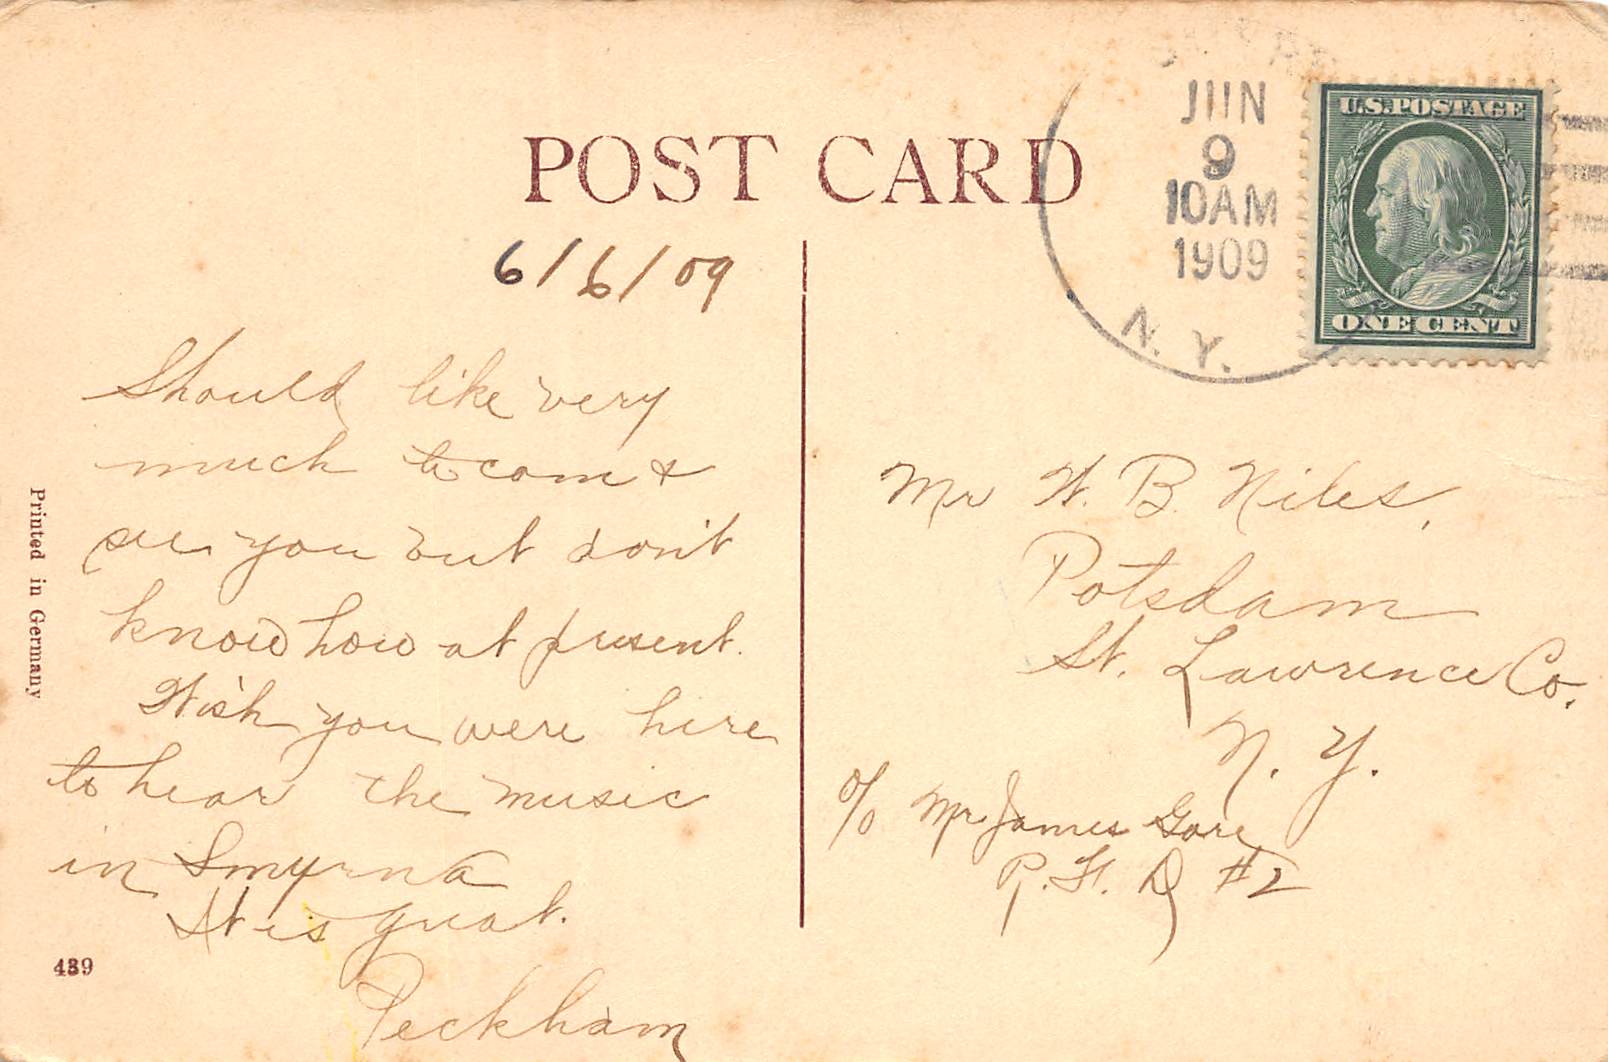 POST CARD
JUN
9
10AM
1909
N. Y.
U.S. POSTAGE
ONE CENT
6/6/09
Should like very
much to come &
see you but don't
know how at present.
Wish you were here
to hear the music
in Smyrna
It is great.
Peckham
Mr W. B. Niles,
Potsdam
St. Lawrence Co.
N. Y.
c/o Mr James Gore
R. F. D #2
Printed in Germany
439